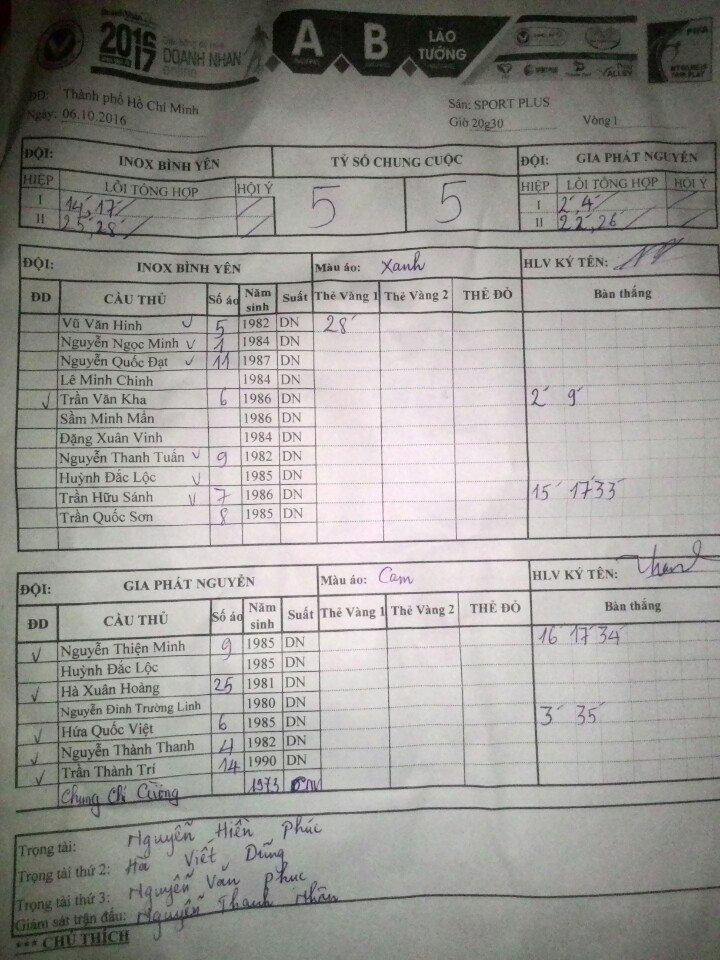 2016
17
DOANH NHÂN
online
A
B
LÃO
TƯỚNG
FIFA
Thành phố Hồ Chí Minh
Sân: SPORT PLUS
Ngày: 06.10.2016
Giờ 20g30
Vòng 1
ĐỘI: INOX BÌNH YÊN TỶ SỐ CHUNG CUỘC ĐỘI: GIA PHÁT NGUYÊN
HIỆP LỖI TỔNG HỢP HỘI Ý 5 5 HIỆP LỖI TỔNG HỢP HỘI Ý
I 14', 17' I 2', 4'
II 25', 28' II 22', 26'
ĐỘI: INOX BÌNH YÊN Màu áo: Xanh HLV KÝ TÊN:
ĐD CẦU THỦ Số áo Năm sinh Suất Thẻ Vàng 1 Thẻ Vàng 2 THẺ ĐỎ Bàn thắng
Vũ Văn Hinh ✓ 5 1982 DN 28'
Nguyễn Ngọc Minh ✓ 1 1984 DN
Nguyễn Quốc Đạt ✓ 11 1987 DN
Lê Minh Chinh 1984 DN
✓ Trần Văn Kha 6 1986 DN 2' 9'
Sầm Minh Mẫn 1986 DN
Đặng Xuân Vinh 1984 DN
Nguyễn Thanh Tuấn ✓ 9 1982 DN
Huỳnh Đắc Lộc ✓ 1985 DN
Trần Hữu Sánh ✓ 7 1986 DN 15' 17' 33'
Trần Quốc Sơn 8 1985 DN
ĐỘI: GIA PHÁT NGUYÊN Màu áo: Cam HLV KÝ TÊN:
ĐD CẦU THỦ Số áo Năm sinh Suất Thẻ Vàng 1 Thẻ Vàng 2 THẺ ĐỎ Bàn thắng
✓ Nguyễn Thiện Minh 9 1985 DN 16' 17' 34'
Huỳnh Đắc Lộc 1985 DN
✓ Hà Xuân Hoàng 25 1981 DN
Nguyễn Đình Trường Linh 1980 DN
✓ Hứa Quốc Việt 6 1985 DN 3' 35'
✓ Nguyễn Thành Thanh 4 1982 DN
✓ Trần Thành Trí 14 1990 DN
Chung Chí Cường 1973
Trọng tài: Nguyễn Hiền Phúc
Trọng tài thứ 2: Hà Viết Dũng
Trọng tài thứ 3: Nguyễn Văn Phúc
Giám sát trận đấu: Nguyễn Thanh Nhân
*** CHÚ THÍCH